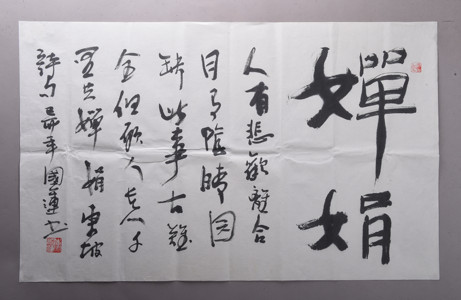 嬋娟
人有悲歡離合
月有陰晴圓
缺此事古難
全但願人長久千
里共嬋娟東坡
詩句 年國蓮书